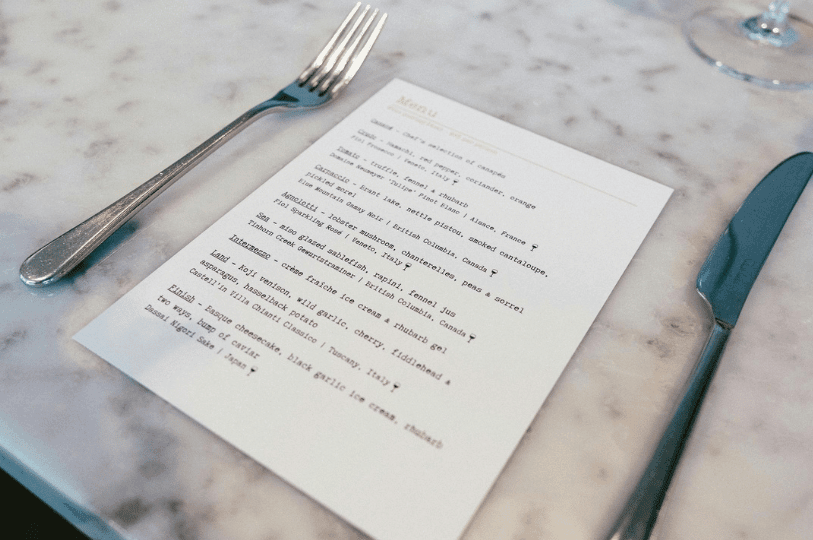 Menu
Canapé - Chef's selection of canapés
Crudo - Hamachi, red pepper, coriander, orange
Fiol Prosecco | Veneto, Italy
Tomato - truffle, fennel & rhubarb
Domaine "Tulipe" Pinot Blanc | Alsace, France
Carpaccio - brant lake, nettle pistou, smoked cantaloupe,
pickled morel
Blue Mountain Gamay Noir | British Columbia, Canada
Agnolotti - lobster mushroom, chanterelles, peas & sorrel
Fiol Sparkling Rosé | Veneto, Italy
Sea - miso glazed sablefish, rapini, fennel jus
Tinhorn Creek Gewurtztraminer | British Columbia, Canada
Intermezzo - crème fraîche ice cream & rhubarb gel
Land - koji venison, wild garlic, cherry, fiddlehead &
asparagus, hasselback potato
Castell'in Villa Chianti Classico | Tuscany, Italy
Finish - Basque cheesecake, black garlic ice cream, rhubarb
two ways, bump of caviar
Dassai Nigori Sake | Japan